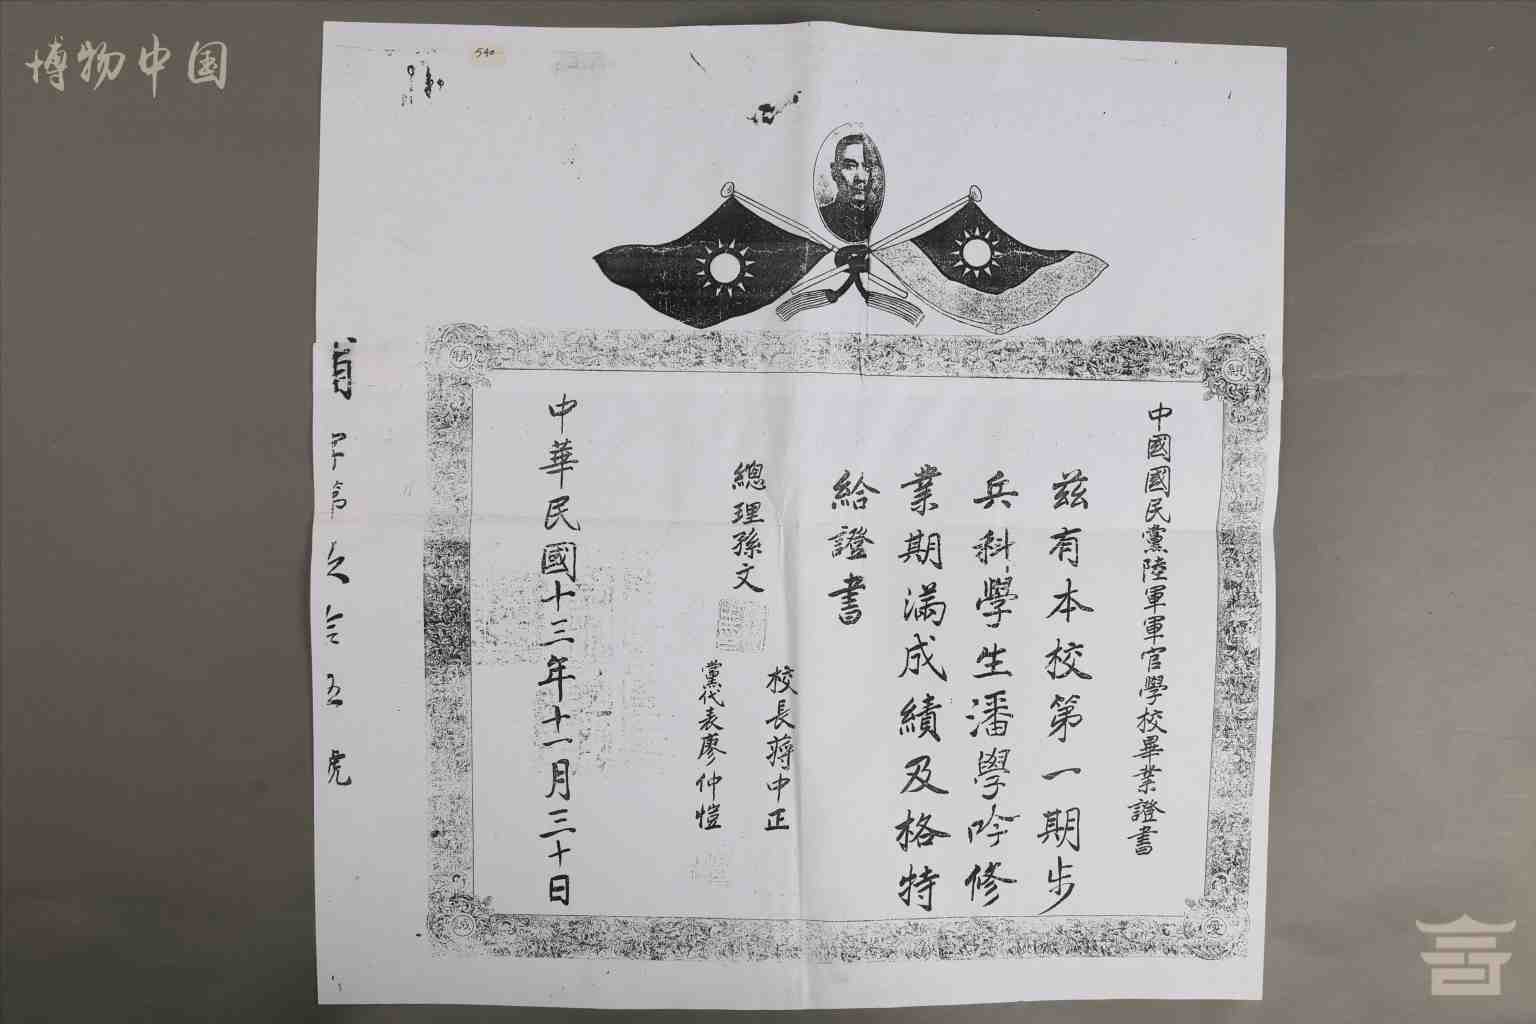 博物中国
540
中國國民黨陸軍軍官學校畢業證書
茲有本校第一期步
兵科學生潘學吟修
業期滿成績及格特
給證書
總理孫文
校長蔣中正
黨代表廖仲愷
中華民國十三年十一月三十日